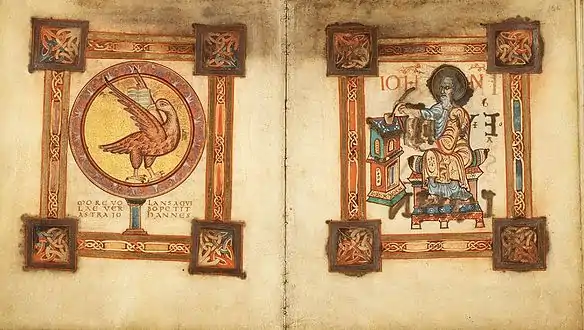 MORE VO LANSAQUI
LAE VER BOPETIT
ASTRA IO HANNES
IOH